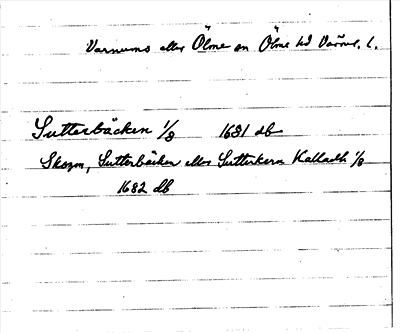 Varnums eller Ölme sn Ölme hd Värml. l.
Sutterbäcken 1/8 1681 db
Skogm, Sutterbäcken eller Sutterkern Kalladh 1/8
1682 db